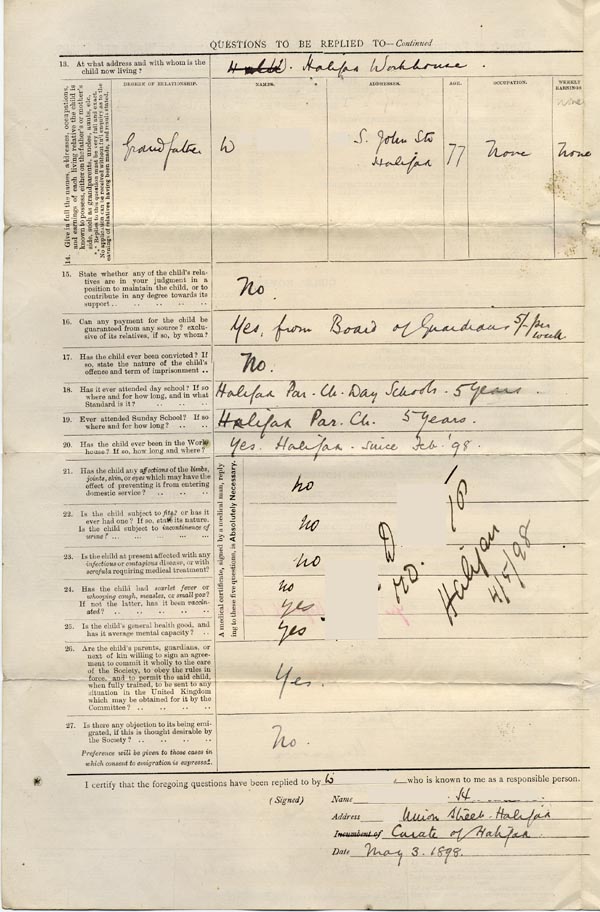 QUESTIONS TO BE REPLIED TO—Continued
13. At what address and with whom is the
child now living?
Halifax Workhouse.
14. Give in full the names, addresses, occupations,
and earnings of each living relative the child is
known to possess, either on the father's or mother's
side, such as grandparents, uncles, aunts, etc.
*** Replies to this question must be very full and exact.
No application can be received without full enquiry as to the
earnings of relatives having been made, and result stated.
DEGREE OF RELATIONSHIP. NAMES. ADDRESSES. AGE. OCCUPATION. WEEKLY
EARNINGS
Grandfather W S. John Sts 77 None None
Halifax
15. State whether any of the child's rela-
tives are in your judgment in a
position to maintain the child, or to
contribute in any degree towards its
support .. .. .. .. ..
No.
16. Can any payment for the child be
guaranteed from any source? exclu-
sive of its relatives, if so, by whom?
Yes, from Board of Guardians 5/- per
week
17. Has the child ever been convicted? If
so, state the nature of the child's
offence and term of imprisonment ..
No.
18. Has it ever attended day school? If so
where and for how long, and in what
Standard is it? .. .. .. ..
Halifax Par. Ch. Day Schools. 5 Years.
19. Ever attended Sunday School? If so
where and for how long? .. ..
Halifax Par. Ch. 5 Years.
20. Has the child ever been in the Work-
house? If so, how long and where?
Yes. Halifax. Since Feb. '98.
A medical certificate, signed by a medical man, reply
ing to these five questions, is Absolutely Necessary.
21. Has the child any affections of the limbs,
joints, skin, or eyes which may have the
effect of preventing it from entering
domestic service? .. .. ..
no
22. Is the child subject to fits? or has it
ever had one? If so, state its nature.
Is the child subject to incontinence of
urine? .. .. .. ..
no
23. Is the child at present affected with any
infectious or contagious disease, or with
scrofula requiring medical treatment?
no
24. Has the child had scarlet fever or
whooping cough, measles, or small pox?
If not the latter, has it been vaccin-
ated? .. .. .. .. ..
no
yes
25. Is the child's general health good, and
has it average mental capacity? ..
yes
D
Halifax
4/5/98
26. Are the child's parents, guardians, or
next of kin willing to sign an agree-
ment to commit it wholly to the care
of the Society, to obey the rules in
force, and to permit the said child,
when fully trained, to be sent to any
situation in the United Kingdom
which may be obtained for it by the
Committee? .. .. .. ..
Yes.
27. Is there any objection to its being emi-
grated, if this is thought desirable by
the Society? .. .. .. ..
Preference will be given to those cases in
which consent to emigration is expressed.
No.
I certify that the foregoing questions have been replied to by W who is known to me as a responsible person.
(Signed) Name H
Address Union Street. Halifax
Incumbent of Curate of Halifax.
Date May 3. 1898.